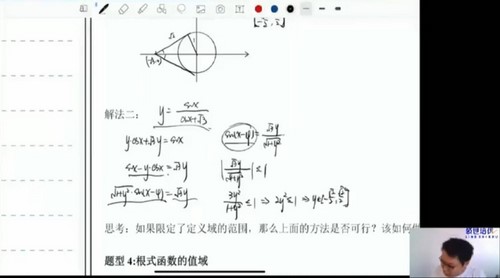 √3
1
(-√3,0)
解法二: y = sinx / (cosx+√3)
y cosx+√3y = sinx
sin(x-φ) = √3y / √(1+y²)
sinx - y·cosx = √3y
|√3y / √(1+y²)| ≤ 1
√(1+y²)·sin(x-φ) = √3y
3y² / (1+y²) ≤ 1 ⇒ 2y² ≤ 1 ⇒ y∈[-√2/2, √2/2]
思考: 如果限定了定义域的范围, 那么上面的方法是否可行? 该如何
题型 4:根式函数的值域